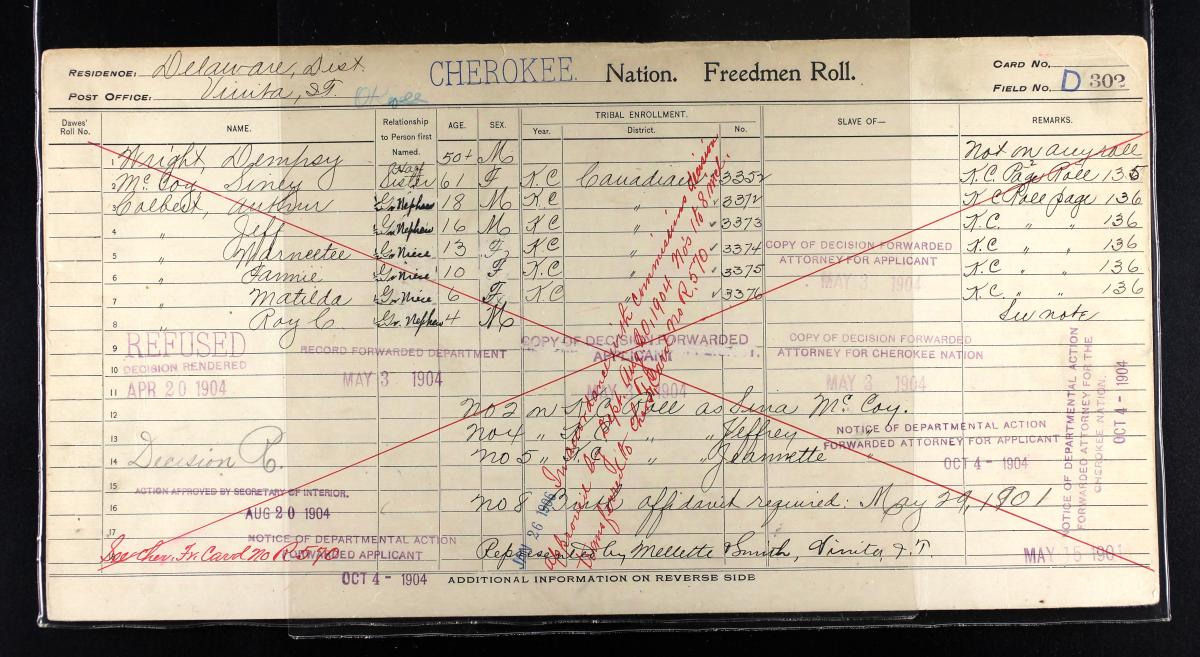 RESIDENCE: Delaware, Dist. CHEROKEE Nation. Freedmen Roll. CARD NO.
POST OFFICE: Vinita, I.T. FIELD NO. D 302
Dawes' Roll No. NAME. Relationship to Person first Named. AGE. SEX. TRIBAL ENROLLMENT. Year. District. No. SLAVE OF— REMARKS.
1 Wright, Dempsy 50+ M Not on any roll
2 McCoy, Siney Half Sister 61 F K.C. Canadian 3352 K.C. Page Roll 135
Colbert, Arthur Gr Nephew 18 M K C " 3372 K C Roll page 136
4 " Jeff Gr Nephew 16 M K C " 3373 K.C. " " 136
5 " Marncetee Gr Niece 13 F K C " 3374 K C " " 136
6 " Fannie Gr Niece 10 F K.C " 3375 K C " " 136
7 " Matilda Gr Niece 6 F K.C " 3376 K.C. " " 136
8 " Roy C Gr. Nephew 4 M See note
9
10
11
12
13
14
15
16
17
REFUSED
DECISION RENDERED
APR 20 1904
RECORD FORWARDED DEPARTMENT
MAY 3 1904
COPY OF DECISION FORWARDED
APPLICANT
COPY OF DECISION FORWARDED
ATTORNEY FOR APPLICANT
MAY 3 1904
COPY OF DECISION FORWARDED
ATTORNEY FOR CHEROKEE NATION
MAY 3 1904
No 2 on K.C. Roll as Sina McCoy.
No 4 " K.C. " " Jeffrey "
No 5 " K.C. " " Jeannette "
Decision R.
NOTICE OF DEPARTMENTAL ACTION
FORWARDED ATTORNEY FOR APPLICANT
OCT 4 - 1904
ACTION APPROVED BY SECRETARY OF INTERIOR.
AUG 20 1904
No 8 Birth affidavit required: May 29, 1901
NOTICE OF DEPARTMENTAL ACTION
FORWARDED APPLICANT
OCT 4 - 1904
See Cher. Fr. Card No R.570
Represented by Mellette & Smith, Vinita, I.T.
MAY 15 1901
JAN 26 1906
In accordance with commissions decision
approved by Dept. Aug 20, 1904 Nos 1 to 8 incl.
transferred to Cher. Fr. Card No R.570
NOTICE OF DEPARTMENTAL ACTION
FORWARDED ATTORNEY FOR THE
CHEROKEE NATION.
OCT 4 - 1904
ADDITIONAL INFORMATION ON REVERSE SIDE